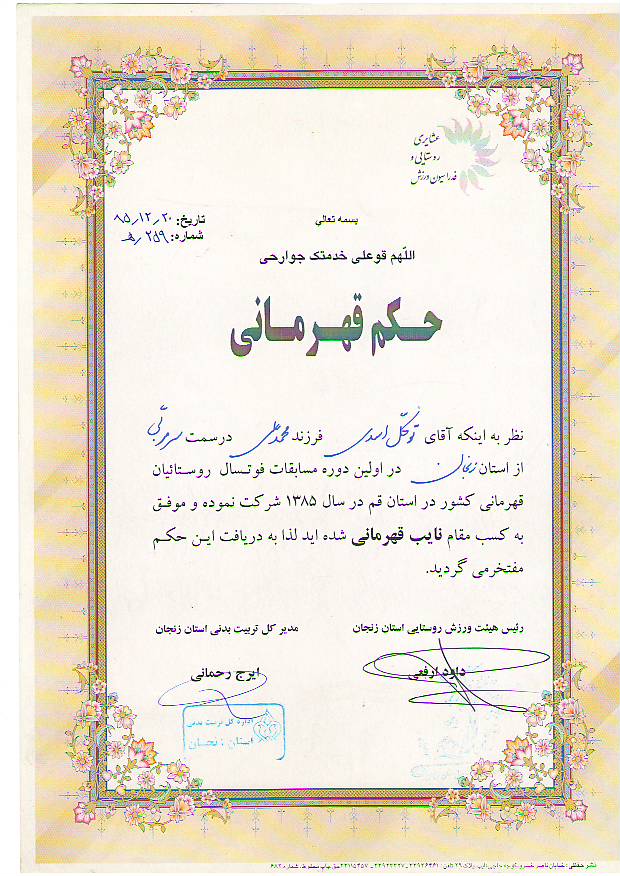 عشایری
روستایی و
فدراسیون ورزش
بسمه تعالی
تاریخ: ۸۵/۱۲/۲۰
شماره: ۲۵۹/ھ
اللّهم قو علی خدمتک جوارحی
حکم قهرمانی
نظر به اینکه آقای توکّل اسدی فرزند محمدعلی درسمت سرمربّی
از استان زنجان در اولین دوره مسابقات فوتسال روستائیان
قهرمانی کشور در استان قم در سال ۱۳۸۵ شرکت نموده و موفق
به کسب مقام نایب قهرمانی شده اید لذا به دریافت این حکم
مفتخرمی گردید.
رئیس هیئت ورزش روستایی استان زنجان
مدیر کل تربیت بدنی استان زنجان
داود ارفعی
ایرج رحمانی
اداره کل تربیت بدنی
استان زنجان